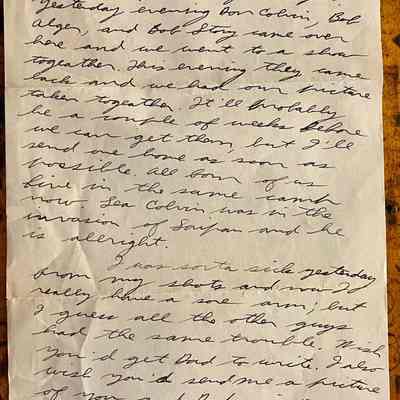 Yesterday evening Don Colvin, Bob
Alger, and Bob Story came over
here and we went to a show
togeather. This evening they came
back and we had our picture
taken togeather. It'll probably
be a couple of weeks before
we can get them, but I'll
send one home as soon as
possible. All four of us
live in the same camp
now. Lea Colvin was in the
invasion of Saipan and he
is allright.
I was sorta sick yesterday
from my shots and now I
really have a sore arm; but
I guess all the other guys
had the same trouble. Wish
you'd get Dad to write. I also
wish you'd send me a picture
of you and Dad